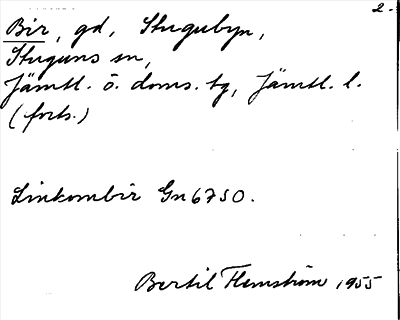 2.
Bir, gd, Stugubyn,
Stuguns sn,
Jämtl. ö. doms. tg, Jämtl. l.
(forts.)
Linkombir Gn 6750.
Bertil Flemström 1955